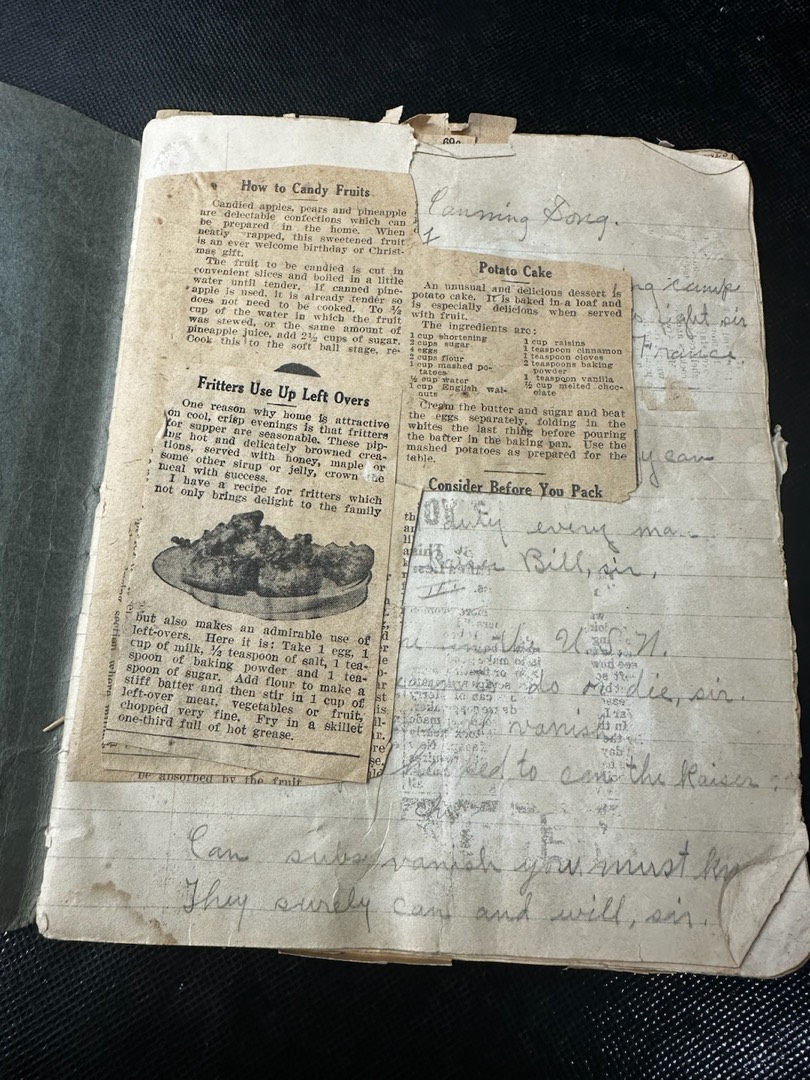 How to Candy Fruits
Candied apples, pears and pineapple
are delectable confections which can
be prepared in the home. When
neatly rapped, this sweetened fruit
is an ever welcome birthday or Christ-
mas gift.
The fruit to be candied is cut in
convenient slices and boiled in a little
water until tender. If canned pine-
apple is used, it is already tender so
does not need to be cooked. To ½
cup of the water in which the fruit
was stewed, or the same amount of
pineapple juice, add 2½ cups of sugar.
Cook this to the soft ball stage, re-
Fritters Use Up Left Overs
One reason why home is attractive
on cool, crisp evenings is that fritters
for supper are seasonable. These pip-
ing hot and delicately browned crea-
tions, served with honey, maple or
some other sirup or jelly, crown the
meal with success.
I have a recipe for fritters which
not only brings delight to the family
but also makes an admirable use of
left-overs. Here it is: Take 1 egg, 1
cup of milk, ½ teaspoon of salt, 1 tea-
spoon of baking powder and 1 tea-
spoon of sugar. Add flour to make a
stiff batter and then stir in 1 cup of
left-over meat, vegetables or fruit,
chopped very fine. Fry in a skillet
one-third full of hot grease.
be absorbed by the fruit
Potato Cake
An unusual and delicious dessert is
potato cake. It is baked in a loaf and
is especially delicious when served
with fruit.
The ingredients are:
1 cup shortening
2 cups sugar
4 eggs
2 cups flour
1 cup mashed po-
tatoes
½ cup water
1 cup English wal-
nuts
1 cup raisins
1 teaspoon cinnamon
1 teaspoon cloves
2 teaspoons baking
powder
1 teaspoon vanilla
½ cup melted choc-
olate
Cream the butter and sugar and beat
the eggs separately, folding in the
whites the last thing before pouring
the batter in the baking pan. Use the
mashed potatoes as prepared for the
table.
Consider Before You Pack
69c
Canning Song.
1
camps
light sir
France.
duty every ma
Bill, sir,
III.
in the U.S.N.
do or die, sir.
vanish
to can the Kaiser
Cho
Can subs vanish you must kn
They surely can and will, sir.